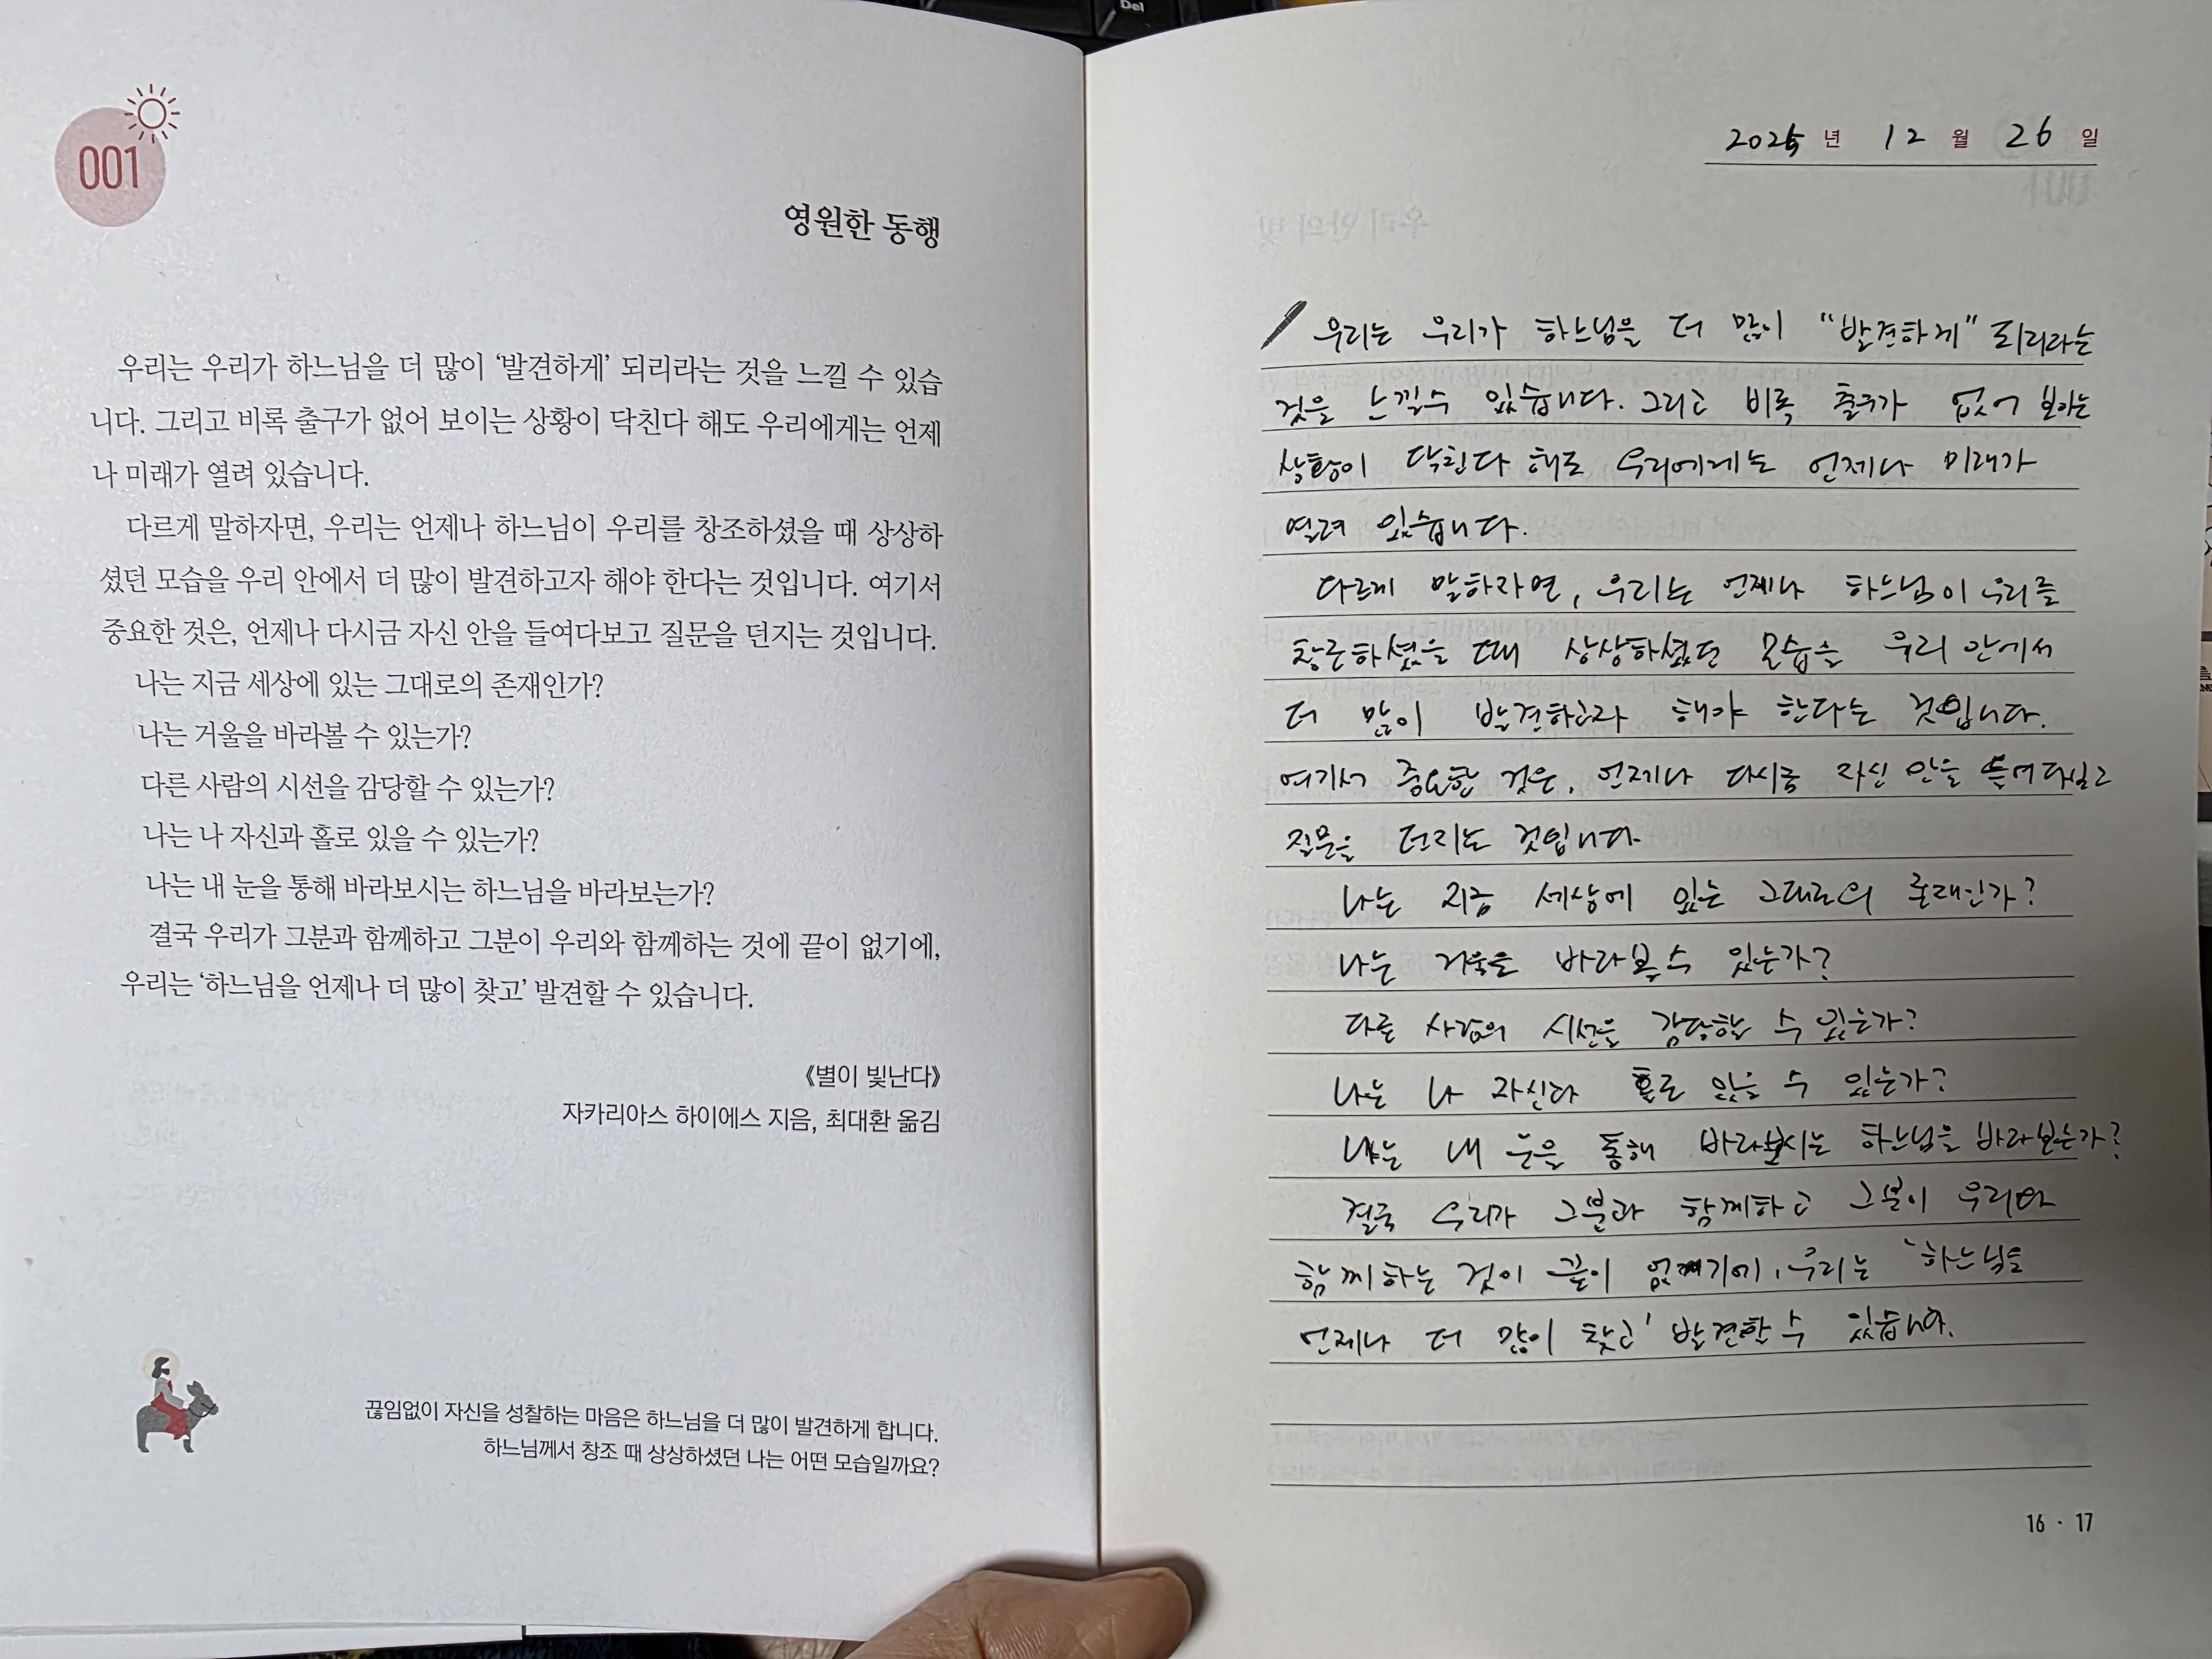 Del
001
영원한 동행
우리는 우리가 하느님을 더 많이 ‘발견하게’ 되리라는 것을 느낄 수 있습
니다. 그리고 비록 출구가 없어 보이는 상황이 닥친다 해도 우리에게는 언제
나 미래가 열려 있습니다.
다르게 말하자면, 우리는 언제나 하느님이 우리를 창조하셨을 때 상상하
셨던 모습을 우리 안에서 더 많이 발견하고자 해야 한다는 것입니다. 여기서
중요한 것은, 언제나 다시금 자신 안을 들여다보고 질문을 던지는 것입니다.
나는 지금 세상에 있는 그대로의 존재인가?
나는 거울을 바라볼 수 있는가?
다른 사람의 시선을 감당할 수 있는가?
나는 나 자신과 홀로 있을 수 있는가?
나는 내 눈을 통해 바라보시는 하느님을 바라보는가?
결국 우리가 그분과 함께하고 그분이 우리와 함께하는 것에 끝이 없기에,
우리는 ‘하느님을 언제나 더 많이 찾고’ 발견할 수 있습니다.
《별이 빛난다》
자카리아스 하이에스 지음, 최대환 옮김
끊임없이 자신을 성찰하는 마음은 하느님을 더 많이 발견하게 합니다.
하느님께서 창조 때 상상하셨던 나는 어떤 모습일까요?
2025 년 12 월 26 일
우리는 우리가 하느님을 더 많이 "발견하게" 되리라는
것을 느낄수 있습니다. 그리고 비록 출구가 없어 보이는
상황이 닥친다 해도 우리에게는 언제나 미래가
열려 있습니다.
다르게 말하자면, 우리는 언제나 하느님이 우리를
창조하셨을 때 상상하셨던 모습을 우리 안에서
더 많이 발견하고자 해야 한다는 것입니다.
여기서 중요한 것은, 언제나 다시금 자신 안을 들여다보고
질문을 던지는 것입니다
나는 지금 세상에 있는 그대로의 존재인가?
나는 거울을 바라볼 수 있는가?
다른 사람의 시선을 감당할 수 있는가?
나는 나 자신과 홀로 있을 수 있는가?
나는 내 눈을 통해 바라보시는 하느님을 바라보는가?
결국 우리가 그분과 함께하고 그분이 우리와
함께하는 것이 끝이 없기에, 우리는 '하느님을
언제나 더 많이 찾고' 발견할 수 있습니다.
16 · 17